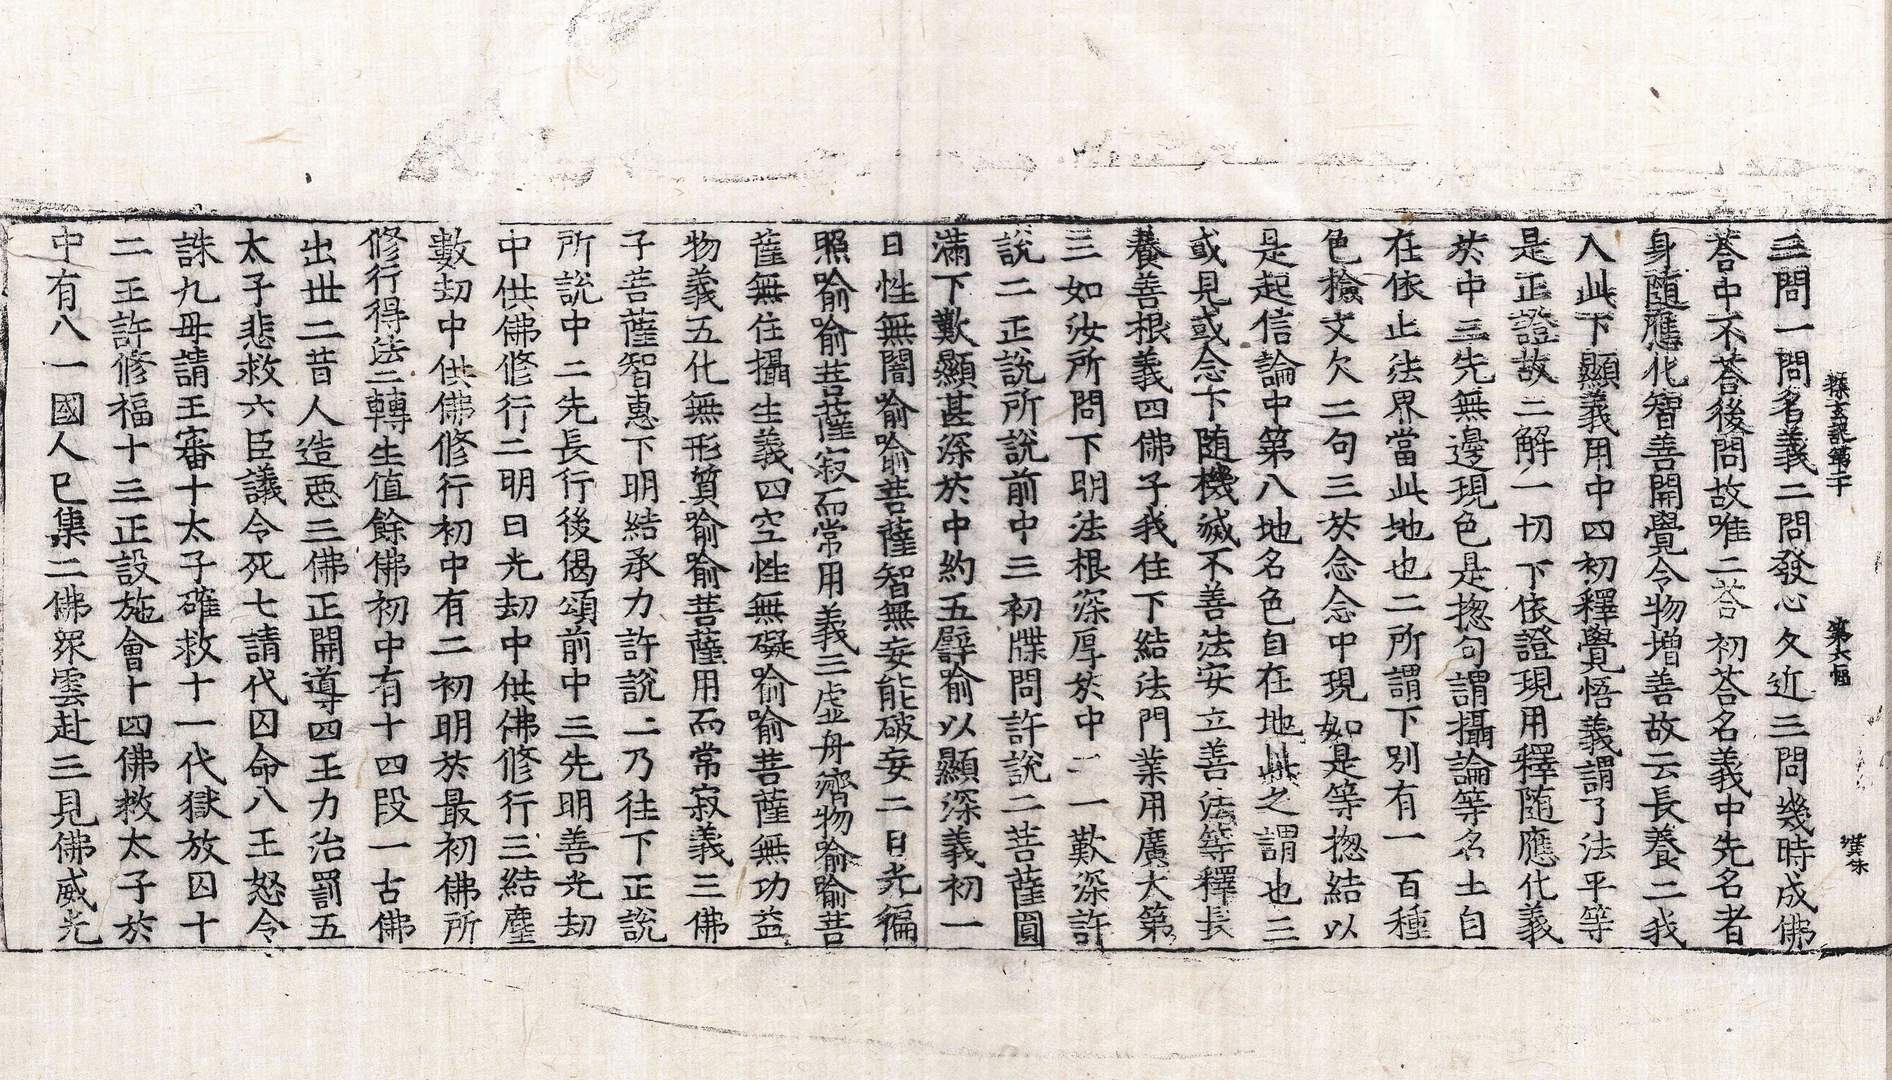 探玄記第二十 第六幅 巽朱
三問一問名義二問發心久近三問幾時成佛
荅中不荅後問故唯二荅初荅名義中先名者
身随應化智善開覺令物增善故云長養二我
入此下顯義用中四初釋覺悟義謂了法平等
是正證故二解一切下依證現用釋随應化義
於中三先無邊現色是揔句謂攝論等名土自
在依止法界當此地也二所謂下別有一百種
色檢文欠二句三於念念中現如是等揔結以
是起信論中第八地名色自在地此之謂也三
或見或念下随機滅不善法安立善法等釋長
養善根義四佛子我住下結法門業用廣大第
三如汝所問下明法根深厚於中二一歎深許
說二正說所說前中三初牒問許說二菩薩圓
滿下歎顯甚深於中約五譬喻以顯深義初一
日性無闇喻喻菩薩智無妄能破妄二日光徧
照喻喻菩薩寂而常用義三虛舟濟物喻喻菩
薩無住攝生義四空性無礙喻喻菩薩無功益
物義五化無形質喻喻菩薩用而常寂義三佛
子菩薩智惠下明結承力許說二乃往下正說
所說中二先長行後偈頌前中三先明善光劫
中供佛修行二明日光劫中供佛修行三結塵
數劫中供佛修行初中有二初明於最初佛所
修行得法二轉生值餘佛初中有十四段一古佛
出世二昔人造惡三佛正開導四王力治罰五
太子悲救六臣議令死七請代囚命八王怒令
誅九母請王審十太子確救十一代獄放囚十
二王許修福十三正設施會十四佛救太子於
中有八一國人已集二佛眾雲赴三見佛威光